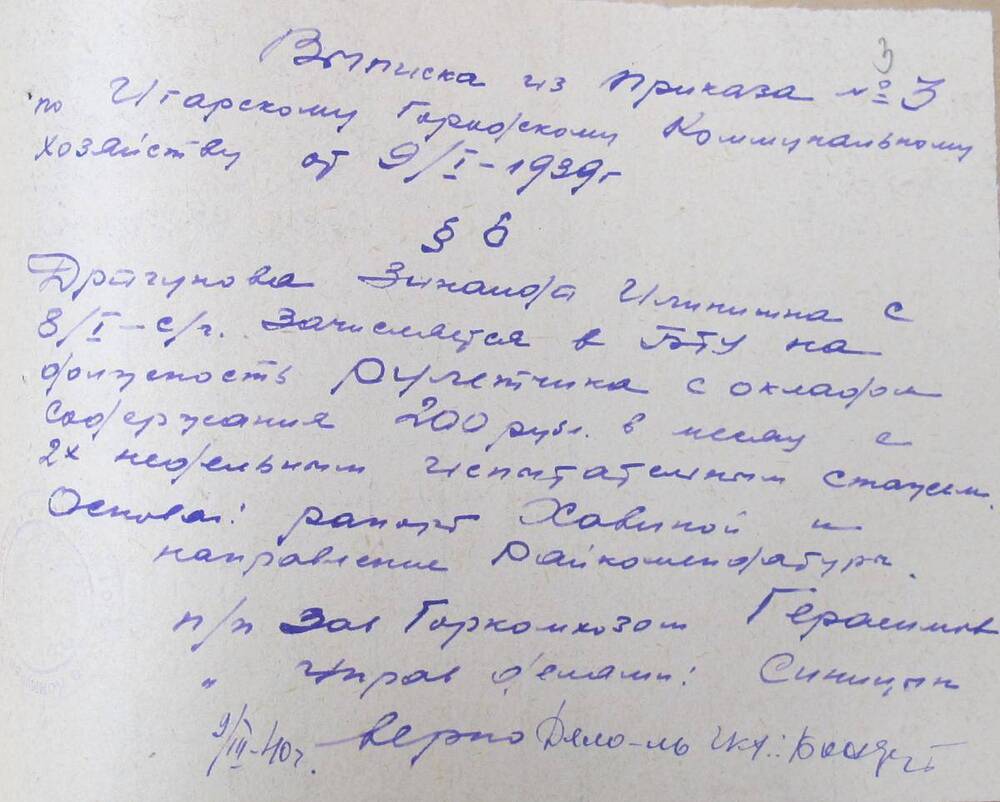 3
Выписка из приказа № 3
по Игарскому Городскому Коммунальному
хозяйству от 9/I-1939г
§ 6
Драгунова Зинаида Илинишна с
8/I-с/г. Зачисляется в БТУ на
должность Рулетчика с окладом
содержания 200 рубл. в месяц с
2х недельным испытательным стажем.
Основан: рапорт Хавиной и
направление Райкомендатуры.
п/п Зав Горкомхозом Герасимов
„ Управ делами: Синицын
9/III-40г. верно Дело-ль ГКХ: